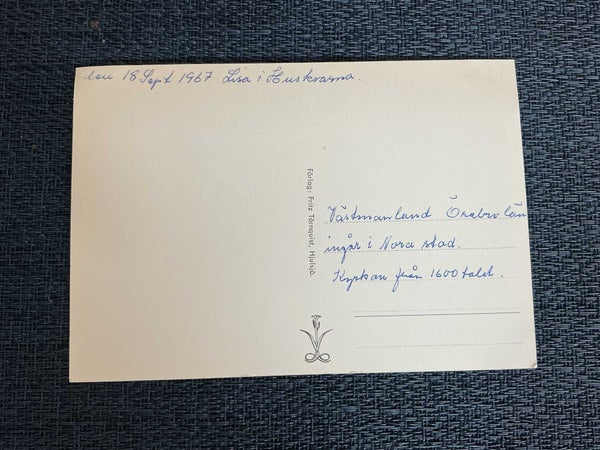 den 18 Sept 1967 Lisa i Huskvarna.
Förlag: Fritz Törnquist, Hjulsjö.
Västmanland Örebro län
ingår i Nora stad.
Kyrkan från 1600 talet.